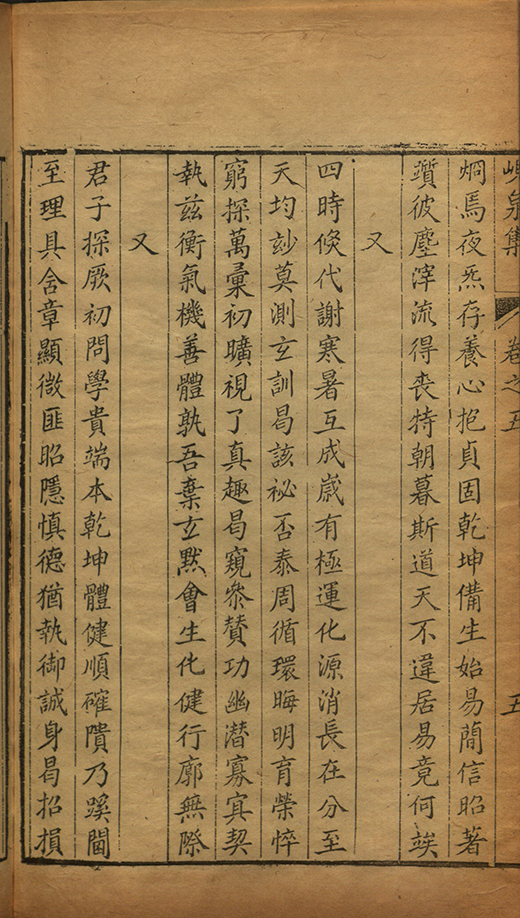 峴泉集 卷之五 五
烱焉夜炁存養心抱貞固乾坤備生始易簡信昭著
躓彼塵滓流得喪特朝暮斯道天不違居易竟何竢
又
四時倐代謝寒暑互成歲有極運化源消長在分至
天均玅莫測玄訓曷該祕否泰周循環晦明育榮悴
窮探萬彚初曠視了真趣曷窺叅贊功幽潛寡寅契
執兹衡氣機善體孰吾棄玄默會生化健行廓無際
又
君子探厥初問學貴端本乾坤體健順確隤乃蹊閫
至理具含章顯微匪昭隱慎德猶執御誠身曷招損